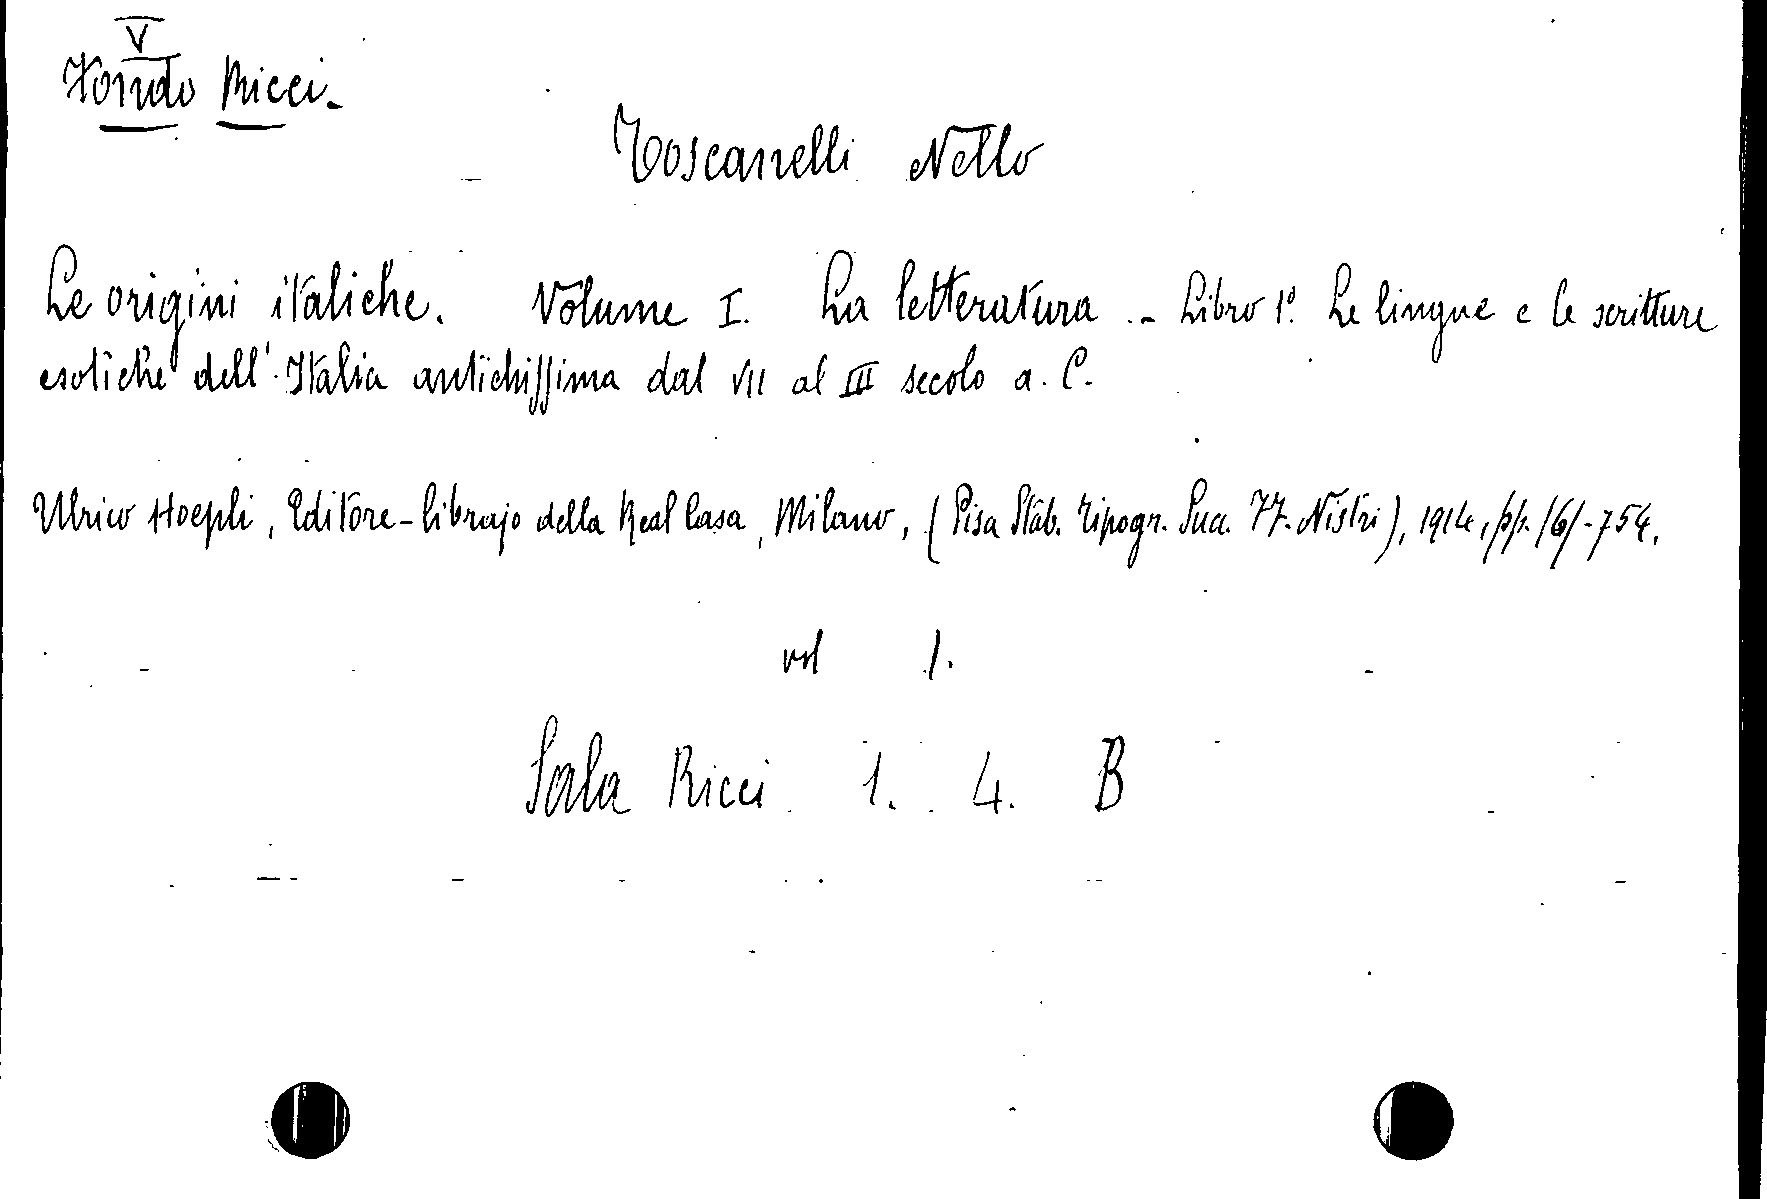 V
Fondo Ricci.
Toscanelli Nello
Le origini italiche. Volume I. La letteratura .- Libro 1º. Le lingue e le scritture
esotiche dell'Italia antichissima dal VII al III secolo a. C.
Ulrico Hoepli, Editore-librajo della Real Casa, Milano, (Pisa Stab. Tipogr. Succ. FF. Nistri), 1914, pp. /6/-754.
vol 1.
Sala Ricci 1. 4. B